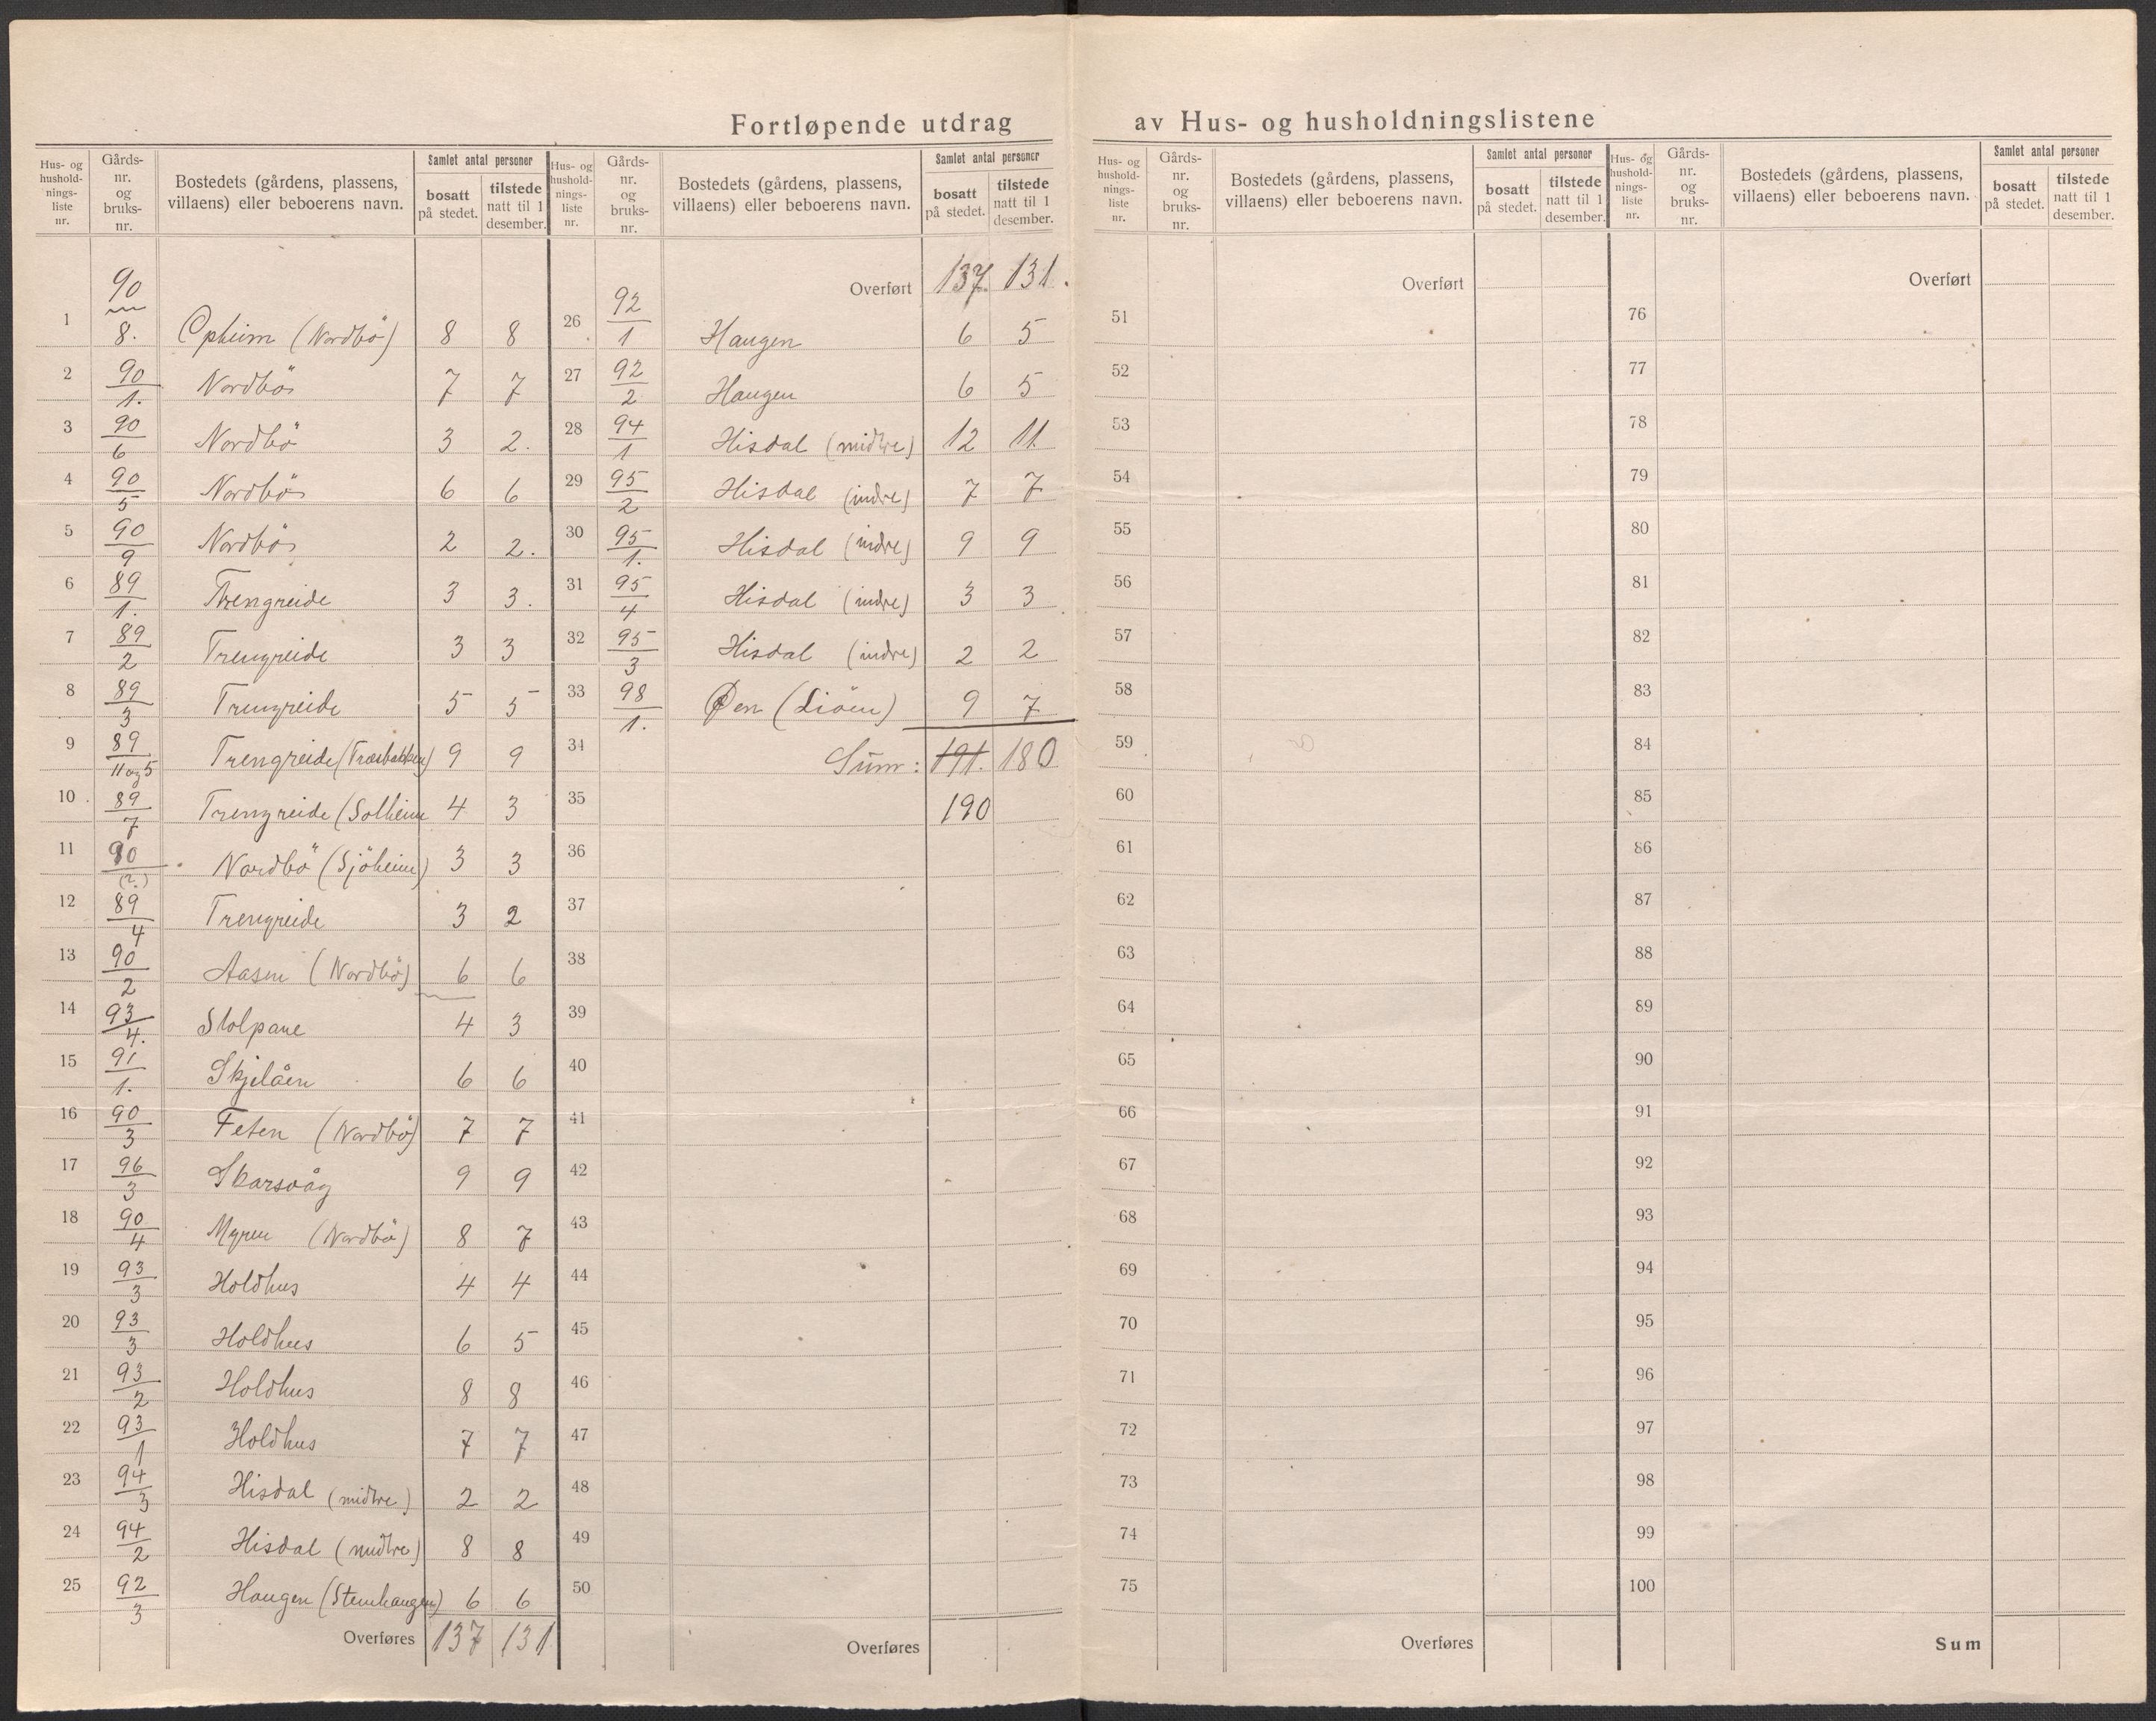 Fortløpende utdrag av Hus- og husholdningslistene
Hus- og hushold-nings-liste nr. Gårds-nr. og bruks-nr. Bostedets (gårdens, plassens, villaens) eller beboerens navn. Samlet antal personer bosatt på stedet. tilstede natt til 1 desember.
1 90/8. Opheim (Nordbö) 8 8
2 90/1. Nordbö 7 7
3 90/6 Nordbö 3 2.
4 90/5 Nordbö 6 6
5 90/9 Nordbö 2 2.
6 89/1. Trengreide 3 3.
7 89/2 Trengreide 3 3
8 89/3 Trengreide 5 5
9 89/11 og 5 Trengreide (Træsbakken) 9 9
10 89/7 Trengreide (Solheim 4 3
11 90/(2.) Nordbö (Sjöheim) 3 3
12 89/4 Trengreide 3 2
13 90/2 Aasen (Nordbö) 6 6
14 93/4. Stolpane 4 3
15 91/1. Skjelåen 6 6
16 90/3 Feten (Nordbö) 7 7
17 96/3 Skarsvåg 9 9
18 90/4 Myren (Nordbö) 8 7
19 93/3 Holdhus 4 4
20 93/3 Holdhus 6 5
21 93/2 Holdhus 8 8
22 93/1 Holdhus 7 7
23 94/3 Hisdal (midtre) 2 2
24 94/2 Hisdal (midtre) 8 8
25 92/3 Haugen (Stemhaugen) 6 6
Overføres 137 131
Hus- og hushold-nings-liste nr. Gårds-nr. og bruks-nr. Bostedets (gårdens, plassens, villaens) eller beboerens navn. Samlet antal personer bosatt på stedet. tilstede natt til 1 desember.
Overført 137. 131.
26 92/1 Haugen 6 5
27 92/2 Haugen 6 5
28 94/1 Hisdal (midtre) 12 11.
29 95/2 Hisdal (indre) 7 7
30 95/1. Hisdal (indre) 9 9
31 95/4 Hisdal (indre) 3 3
32 95/3 Hisdal (indre) 2 2
33 98/1. Øen (Liöen) 9 7
34 Sum: 191. 180
35 190
36
37
38
39
40
41
42
43
44
45
46
47
48
49
50
Overføres
Hus- og hushold-nings-liste nr. Gårds-nr. og bruks-nr. Bostedets (gårdens, plassens, villaens) eller beboerens navn. Samlet antal personer bosatt på stedet. tilstede natt til 1 desember.
Overført
51
52
53
54
55
56
57
58
59
60
61
62
63
64
65
66
67
68
69
70
71
72
73
74
75
Overføres
Hus- og hushold-nings-liste nr. Gårds-nr. og bruks-nr. Bostedets (gårdens, plassens, villaens) eller beboerens navn. Samlet antal personer bosatt på stedet. tilstede natt til 1 desember.
Overført
76
77
78
79
80
81
82
83
84
85
86
87
88
89
90
91
92
93
94
95
96
97
98
99
100
Sum